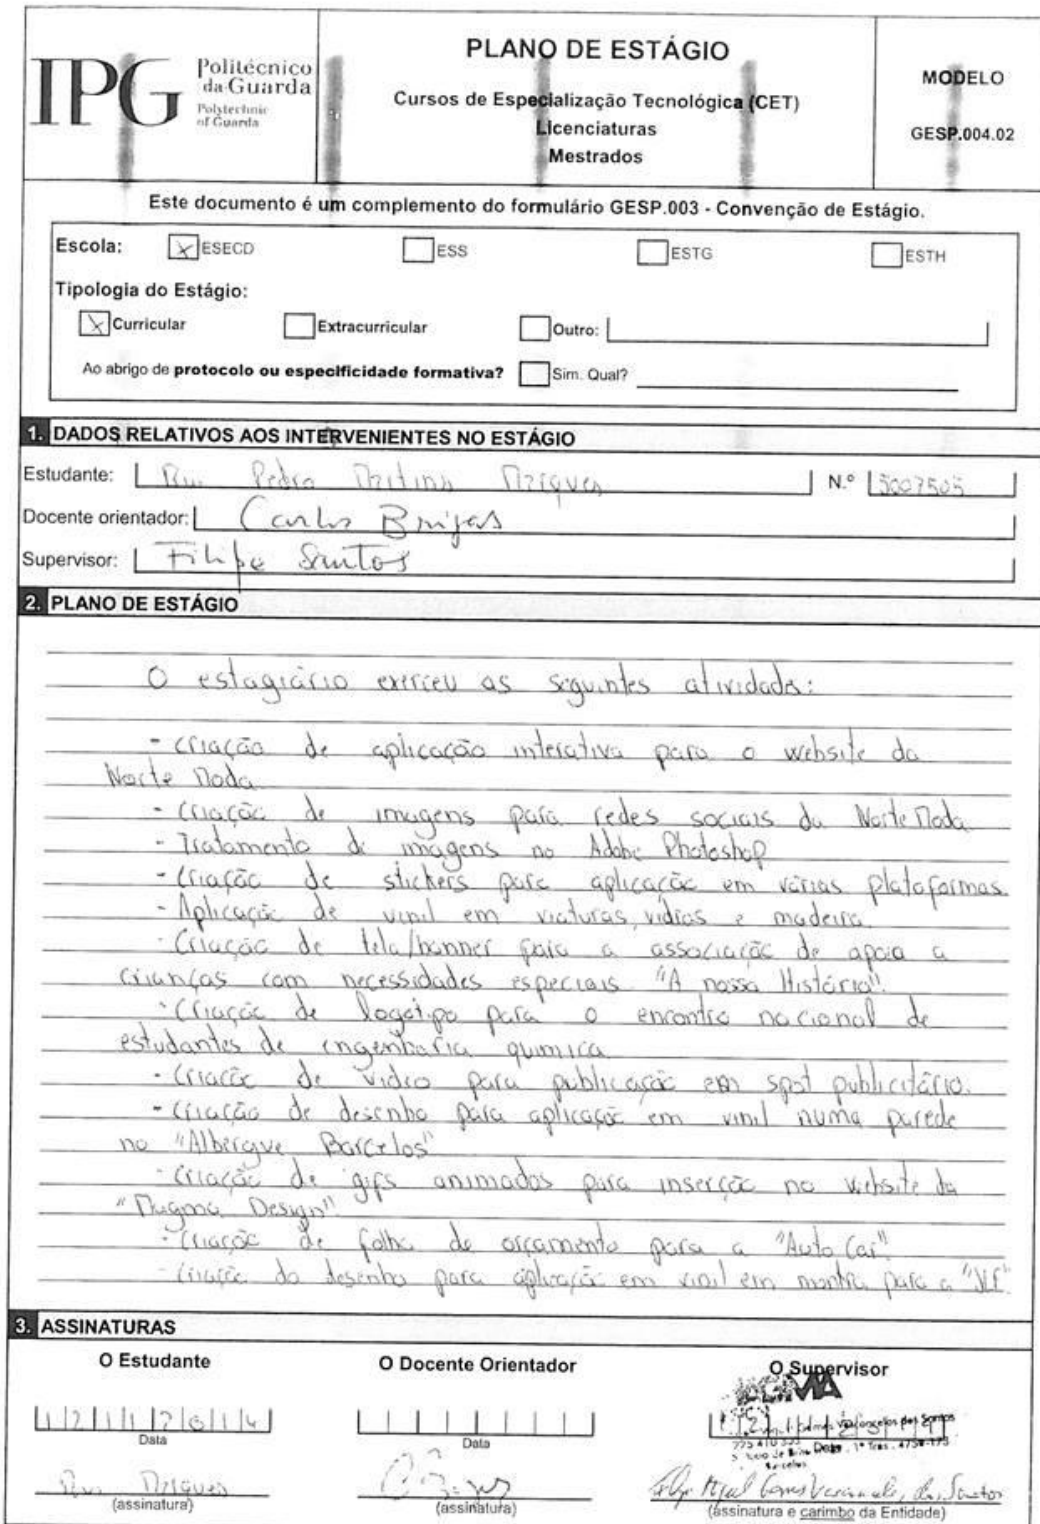 IPG Politécnico
da Guarda
Polytechnic
of Guarda
PLANO DE ESTÁGIO
Cursos de Especialização Tecnológica (CET)
Licenciaturas
Mestrados
MODELO
GESP.004.02
Este documento é um complemento do formulário GESP.003 - Convenção de Estágio.
Escola: ESECD ESS ESTG ESTH
Tipologia do Estágio:
Curricular Extracurricular Outro:
Ao abrigo de protocolo ou especificidade formativa? Sim. Qual?
1. DADOS RELATIVOS AOS INTERVENIENTES NO ESTÁGIO
Estudante: Rui Pedro Martins Marques N.º 5007505
Docente orientador: Carlos Brigas
Supervisor: Filipe Santos
2. PLANO DE ESTÁGIO
O estagiário exerceu as seguintes atividades:
- Criação de aplicação interativa para o website da
Norte Moda
- Criação de imagens para redes sociais da Norte Moda
- Tratamento de imagens no Adobe Photoshop
- Criação de stickers para aplicação em várias plataformas.
- Aplicação de vinil em viaturas, vidros e madeira.
- Criação de tela/banner para a associação de apoio a
crianças com necessidades especiais "A nossa História".
- Criação de logótipo para o encontro nacional de
estudantes de engenharia quimica
- Criação de video para publicação em spot publicitário.
- Criação de desenho para aplicação em vinil numa parede
no "Albergue Barcelos"
- Criação de gifs animados para inserção no website da
"Magma Design"
- Criação de folha de orçamento para a "Auto Car".
- Criação do desenho para aplicação em vinil em montra para a
3. ASSINATURAS
O Estudante
O Docente Orientador
O Supervisor
12112014
Data
Data
Data
Rui Marques
(assinatura)
(assinatura)
(assinatura e carimbo da Entidade)